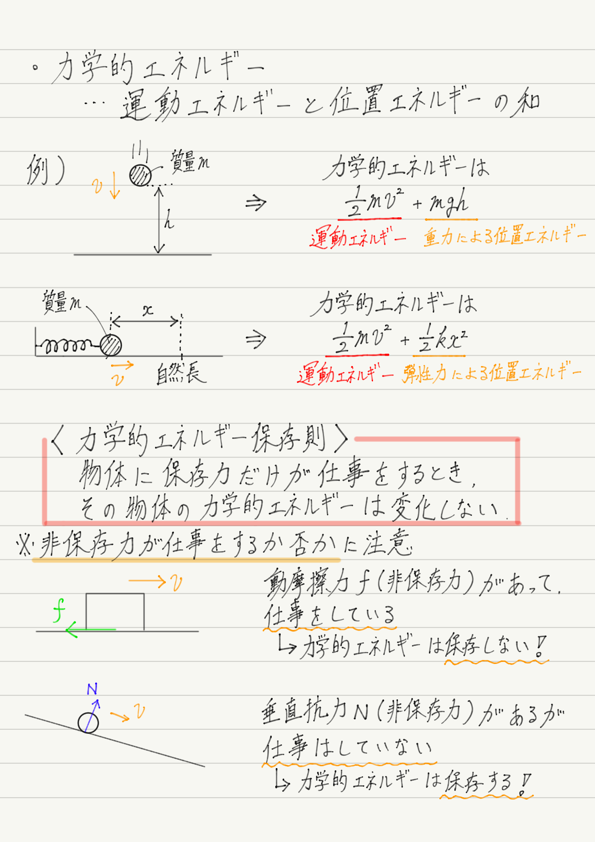 。力学的エネルギー
… 運動エネルギーと位置エネルギーの和
例)
質量m
v
h
⇒
力学的エネルギーは
1/2 mv² + mgh
運動エネルギー 重力による位置エネルギー
質量m
x
v
自然長
⇒
力学的エネルギーは
1/2 mv² + 1/2 kx²
運動エネルギー 弾性力による位置エネルギー
〈力学的エネルギー保存則〉
物体に保存力だけが仕事をするとき,
その物体の力学的エネルギーは変化しない.
※非保存力が仕事をするか否かに注意
v
f
動摩擦力f(非保存力)があって,
仕事をしている
↳力学的エネルギーは保存しない!
N
v
垂直抗力N(非保存力)があるが
仕事はしていない
↳力学的エネルギーは保存する!